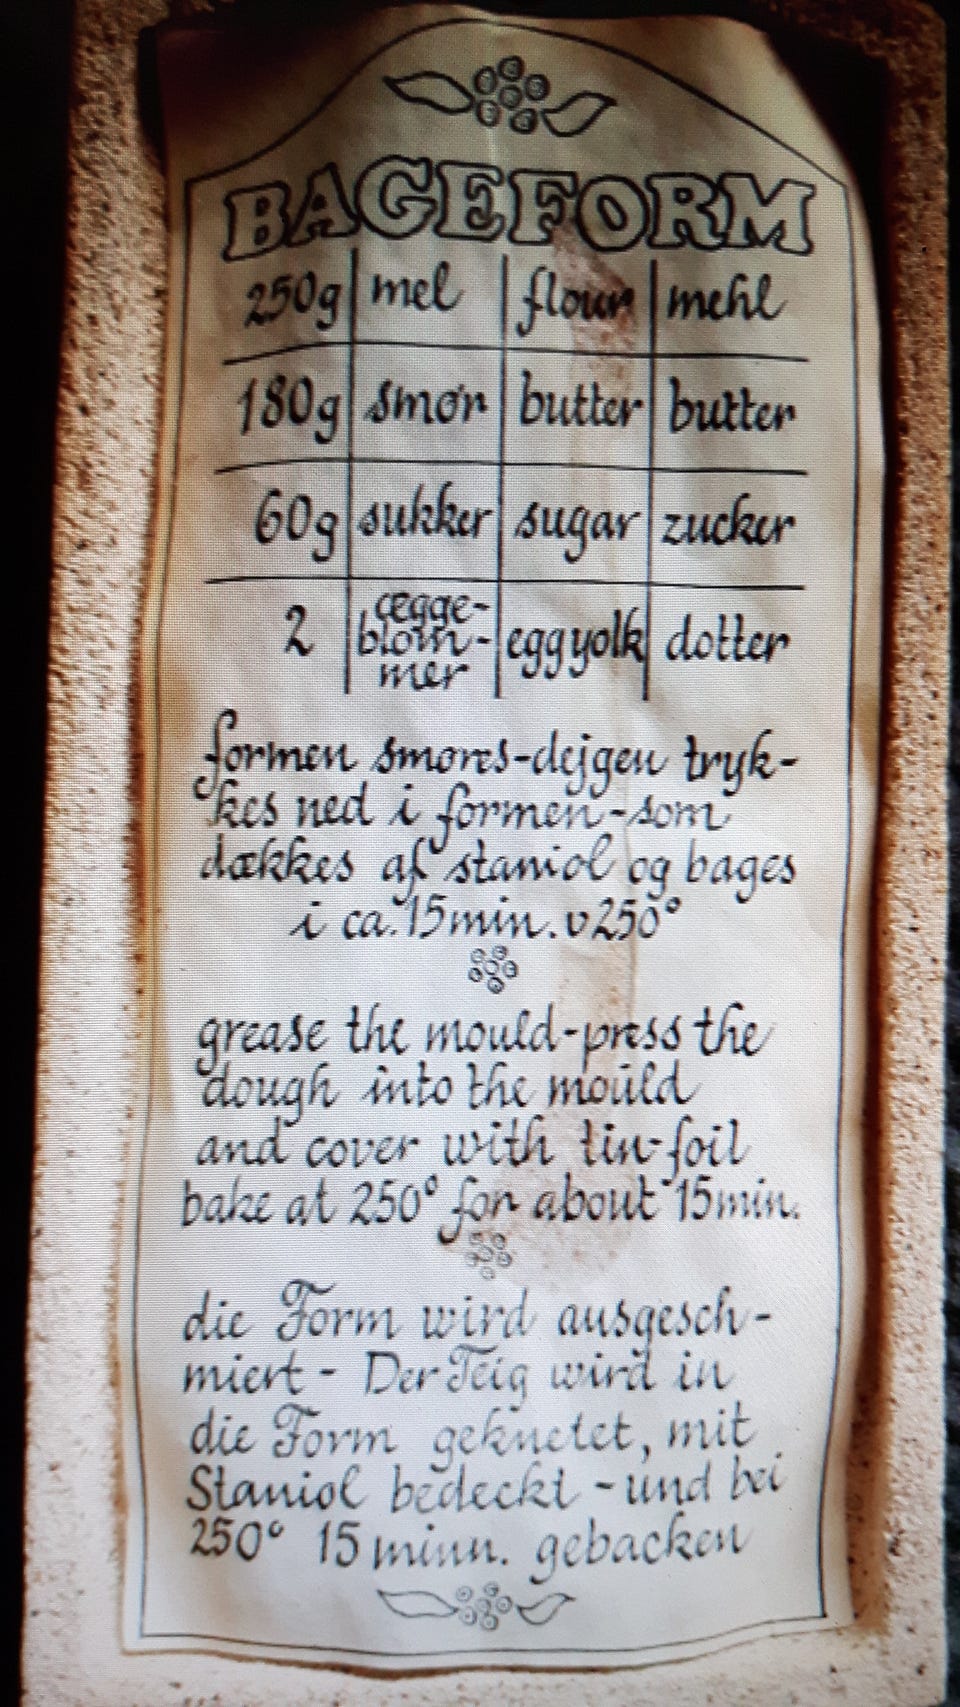 BAGEFORM
250g mel flour mehl
180g smør butter butter
60g sukker sugar zucker
2 ægge-blom-mer eggyolk dotter
formen smøres-dejgen tryk-
kes ned i formen-som
dækkes af staniol og bages
i ca. 15 min. v 250°
grease the mould-press the
dough into the mould
and cover with tin-foil
bake at 250° for about 15 min.
die Form wird ausgesch-
miert - Der Teig wird in
die Form geknetet, mit
Staniol bedeckt - und bei
250° 15 minn. gebacken